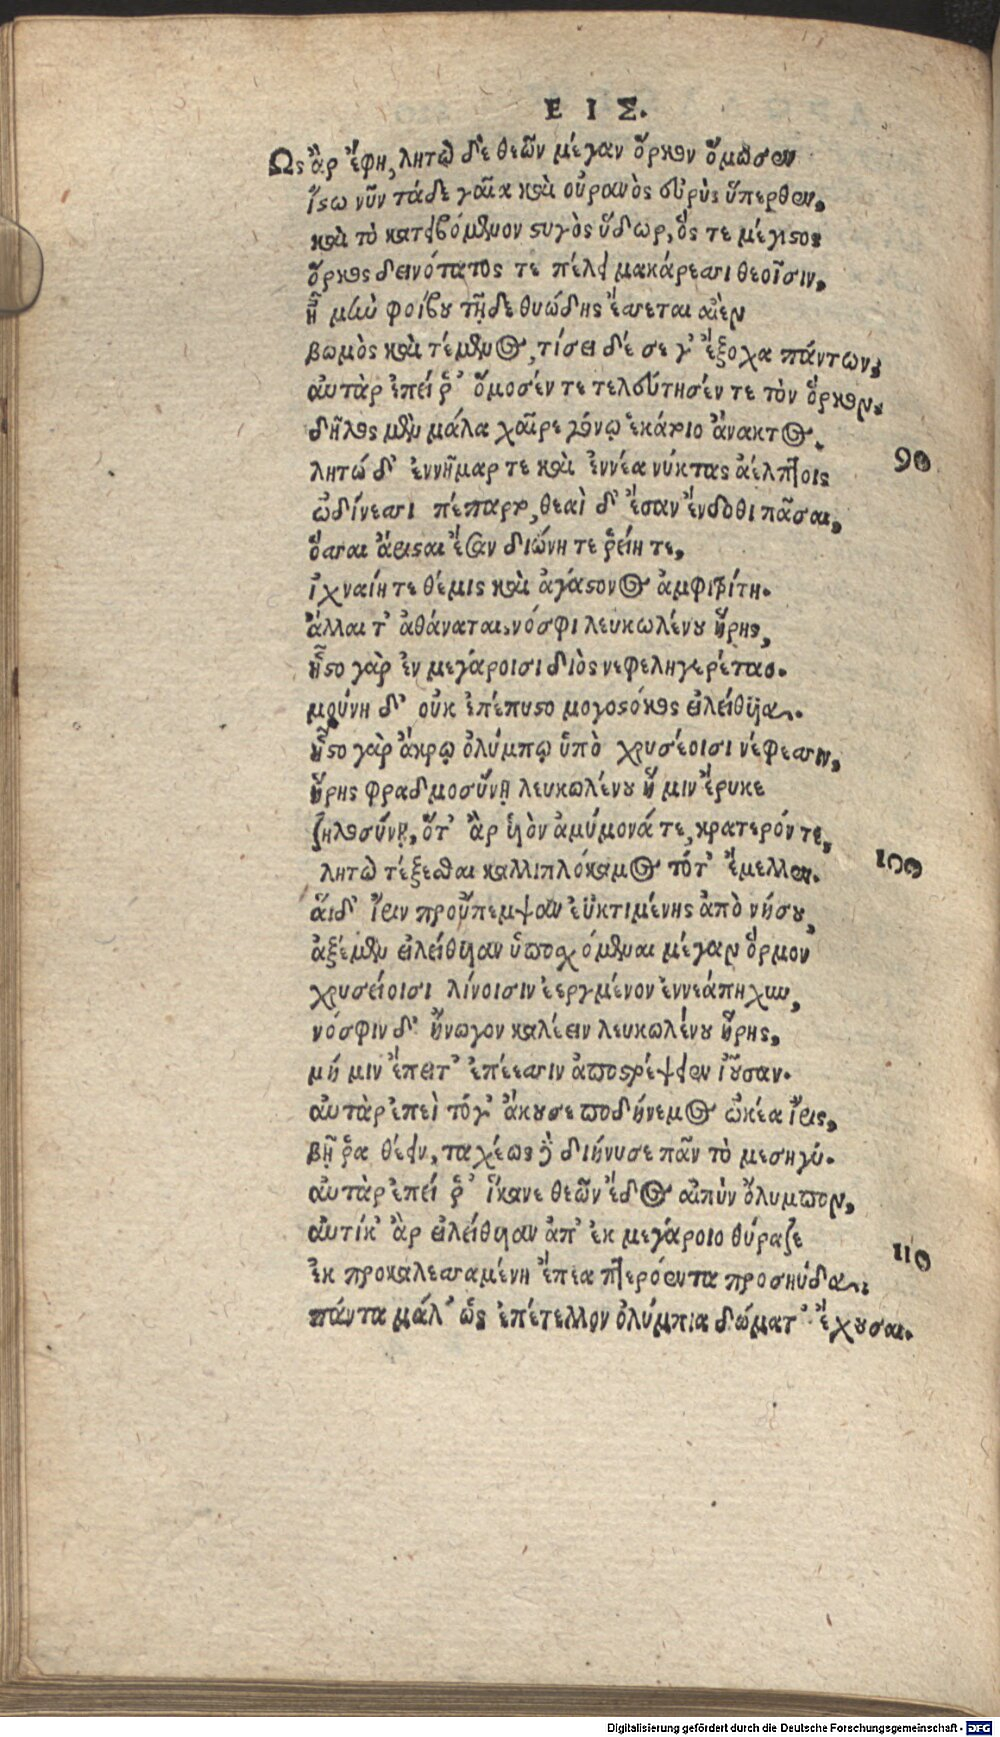 ΕΙΣ.
Ως ἂρ ἔφη, λητὼ δὲ θεῶν μέγαν ὅρκον ὄμοσεν
ἴστω νῦν τάδε γαῖα καὶ οὐρανὸς εὐρὺς ὕπερθεν,
καὶ τὸ κατειβόμενον στυγὸς ὕδωρ, ὅς τε μέγιστος
ὅρκος δεινότατος τε πέλει μακάρεσσι θεοῖσιν,
ἦ μὴν φοίβου τῇδε θυώδης ἔσσεται αἰὲν
βωμὸς καὶ τέμενος, τίσει δέ σε γ' ἔξοχα πάντων,
αὐτὰρ ἐπεί ῥ' ὄμοσέν τε τελεύτησέν τε τὸν ὅρκον,
δῆλος μὲν μάλα χαῖρε γόνῳ ἑκάτοιο ἄνακτος.
90
λητώ δ' ἐννῆμαρ τε καὶ ἐννέα νύκτας ἀέλπτοις
ὠδίνεσσι πέπαρτο, θεαὶ δ' ἔσαν ἔνδοθι πᾶσαι,
ὅσσαι ἄεισαι ἔσαν διώνη τε ῥείη τε,
ἰχναίη τε θέμις καὶ ἀγάστονος ἀμφιτρίτη.
ἄλλαι τ' ἀθάναται, νόσφι λευκωλένου ἥρης,
ἧστο γὰρ ἐν μεγάροισι διὸς νεφεληγερέταο.
μούνη δ' οὐκ ἐπέπυστο μογοστόκος εἰλείθυια.
ἧστο γὰρ ἄκρῳ ὀλύμπῳ ὑπὸ χρυσέοισι νέφεσσιν,
ἥρης φραδμοσύνῃ λευκωλένου ἥ μιν ἔρυκε
ζηλοσύνῃ, ὅτ' ἂρ υἱὸν ἀμύμονά τε, κρατερόν τε,
100
λητὼ τέξεσθαι καλλιπλόκαμος τότ' ἔμελλεν.
αἵδ' ἴειν προὔπεμψαν ἐϋκτιμένης ἀπὸ νήσου,
ἀξέμεν εἰλείθυιαν ὑποσχόμεναι μέγαν ὅρμον
χρυσείοισι λίνοισιν ἐεργμένον ἐννεάπηχυν,
νόσφιν δ' ἤνωγον καλέειν λευκωλένου ἥρης,
μή μιν ἔπειτ' ἐπέεσσιν ἀποστρέψειεν ἰοῦσαν.
αὐτὰρ ἐπεὶ τόγ' ἄκουσε ποδήνεμος ὠκέα ἶρις,
βῆ ῥα θέειν, ταχέως δὲ διήνυσε πᾶν τὸ μεσηγύ.
αὐτὰρ ἐπεί ῥ' ἵκανε θεῶν ἕδος αἰπὺν ὄλυμπον,
αὐτίκ' ἂρ εἰλείθυιαν ἀπ' ἐκ μεγάροιο θύραζε
110
ἐκ προκαλεσσαμένη ἔπεα πτερόεντα προσηύδα.
πάντα μάλ' ὡς ἐπέτελλον ὀλύμπια δώματ' ἔχουσαι.
Digitalisierung gefördert durch die Deutsche Forschungsgemeinschaft - DFG